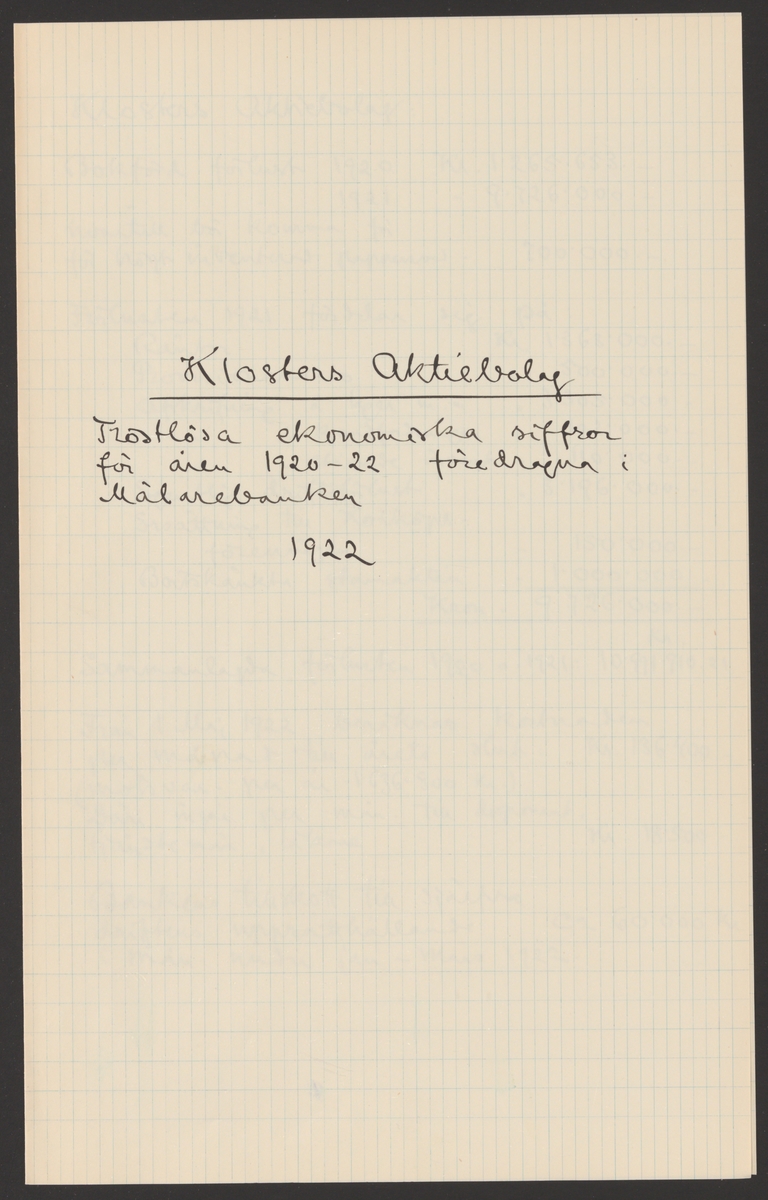 Klosters Aktiebolag
Tröstlösa ekonomiska siffror
för åren 1920-22 föredragna i
Mälarebanken
1922